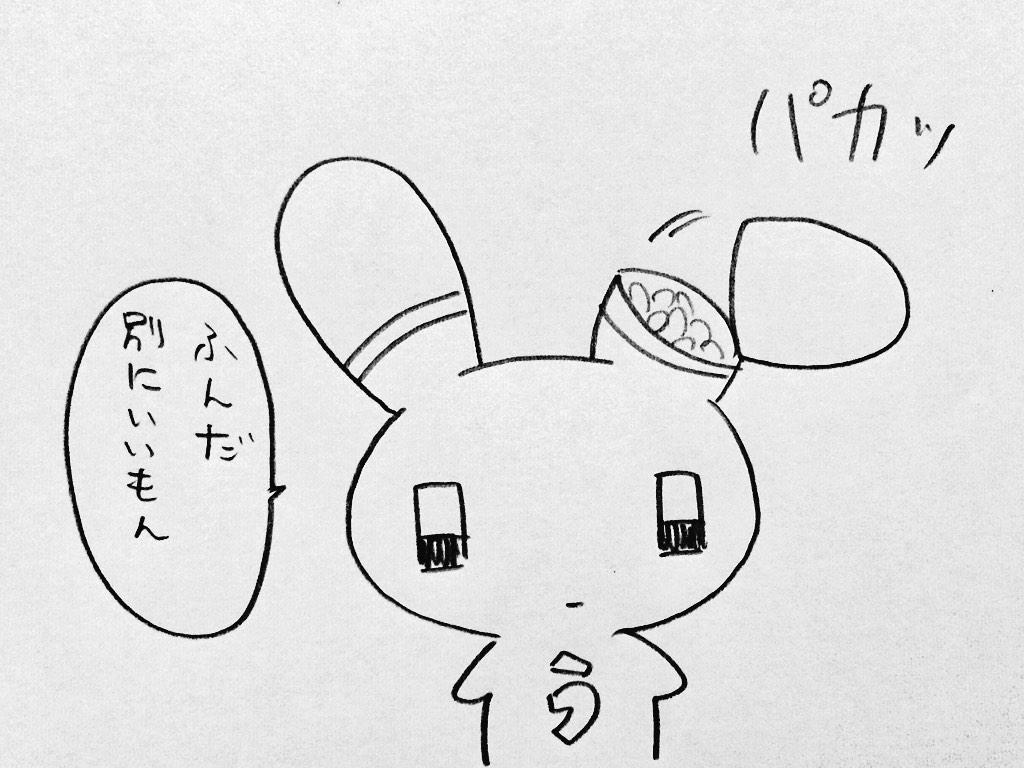 パカッ
ふんだ
別にいいもん
う